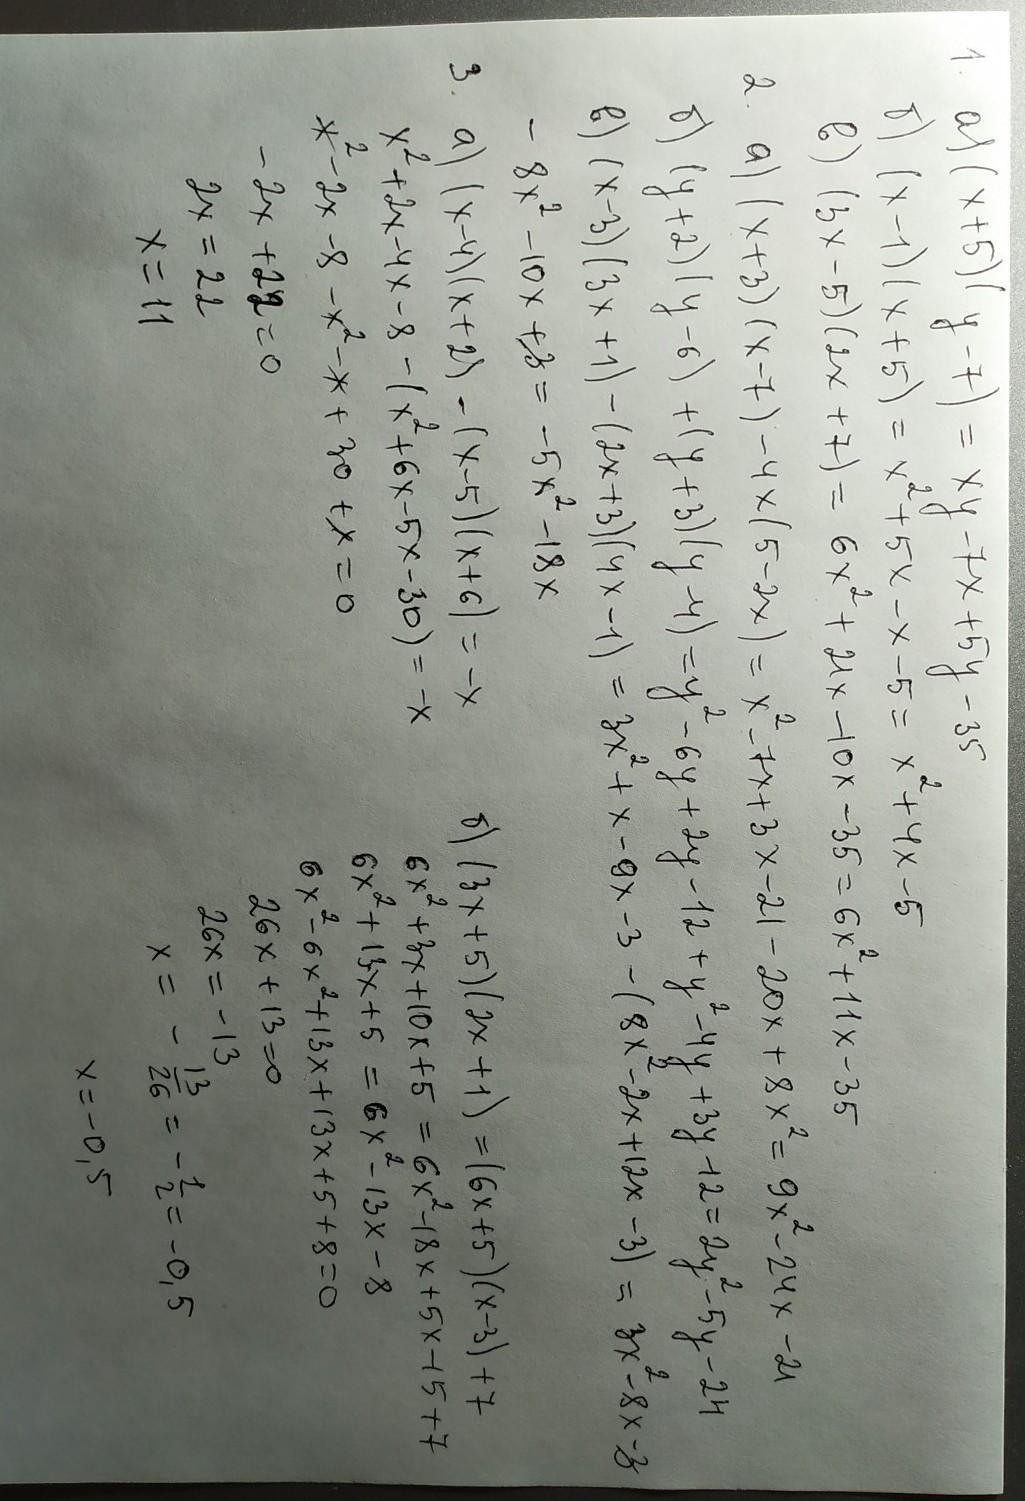 1. а) (x+5)(y-7) = xy-7x+5y-35
б) (x-1)(x+5) = x²+5x-x-5 = x²+4x-5
в) (3x-5)(2x+7) = 6x²+21x-10x-35 = 6x²+11x-35
2. а) (x+3)(x-7)-4x(5-2x) = x²-7x+3x-21-20x+8x² = 9x²-24x-21
б) (y+2)(y-6)+(y+3)(y-4) = y²-6y+2y-12+y²-4y+3y-12 = 2y²-5y-24
в) (x-3)(3x+1)-(2x+3)(4x-1) = 3x²+x-9x-3-(8x²-2x+12x-3) = 3x²-8x-3
-8x²-10x+3 = -5x²-18x
3. а) (x-4)(x+2)-(x-5)(x+6) = -x
x²+2x-4x-8-(x²+6x-5x-30) = -x
x²-2x-8-x²-x+30+x=0
-2x+22=0
2x=22
x=11
б) (3x+5)(2x+1) = (6x+5)(x-3)+7
6x²+3x+10x+5 = 6x²-18x+5x-15+7
6x²+13x+5 = 6x²-13x-8
6x²-6x²+13x+13x+5+8=0
26x+13=0
26x=-13
x = -13/26 = -1/2 = -0,5
x=-0,5